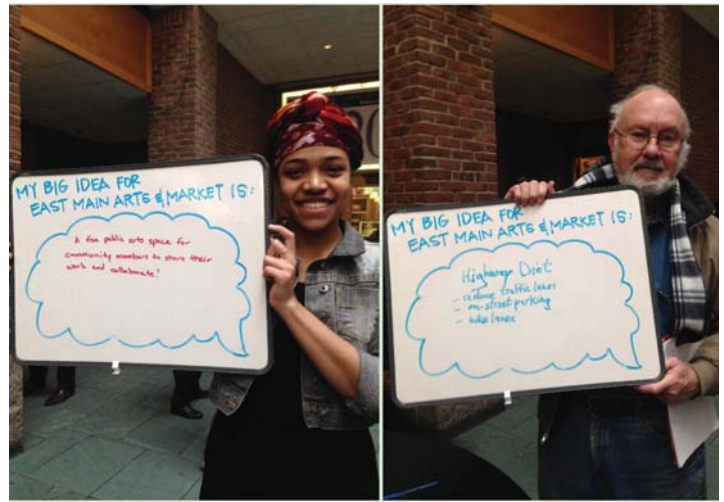 MY BIG IDEA FOR
EAST MAIN ARTS & MARKET IS:
A free public arts space for
community members to share their
work and collaborate!
MY BIG IDEA FOR
EAST MAIN ARTS & MARKET IS:
Highway Diet
- reduce traffic lanes
- on-street parking
- bike lanes